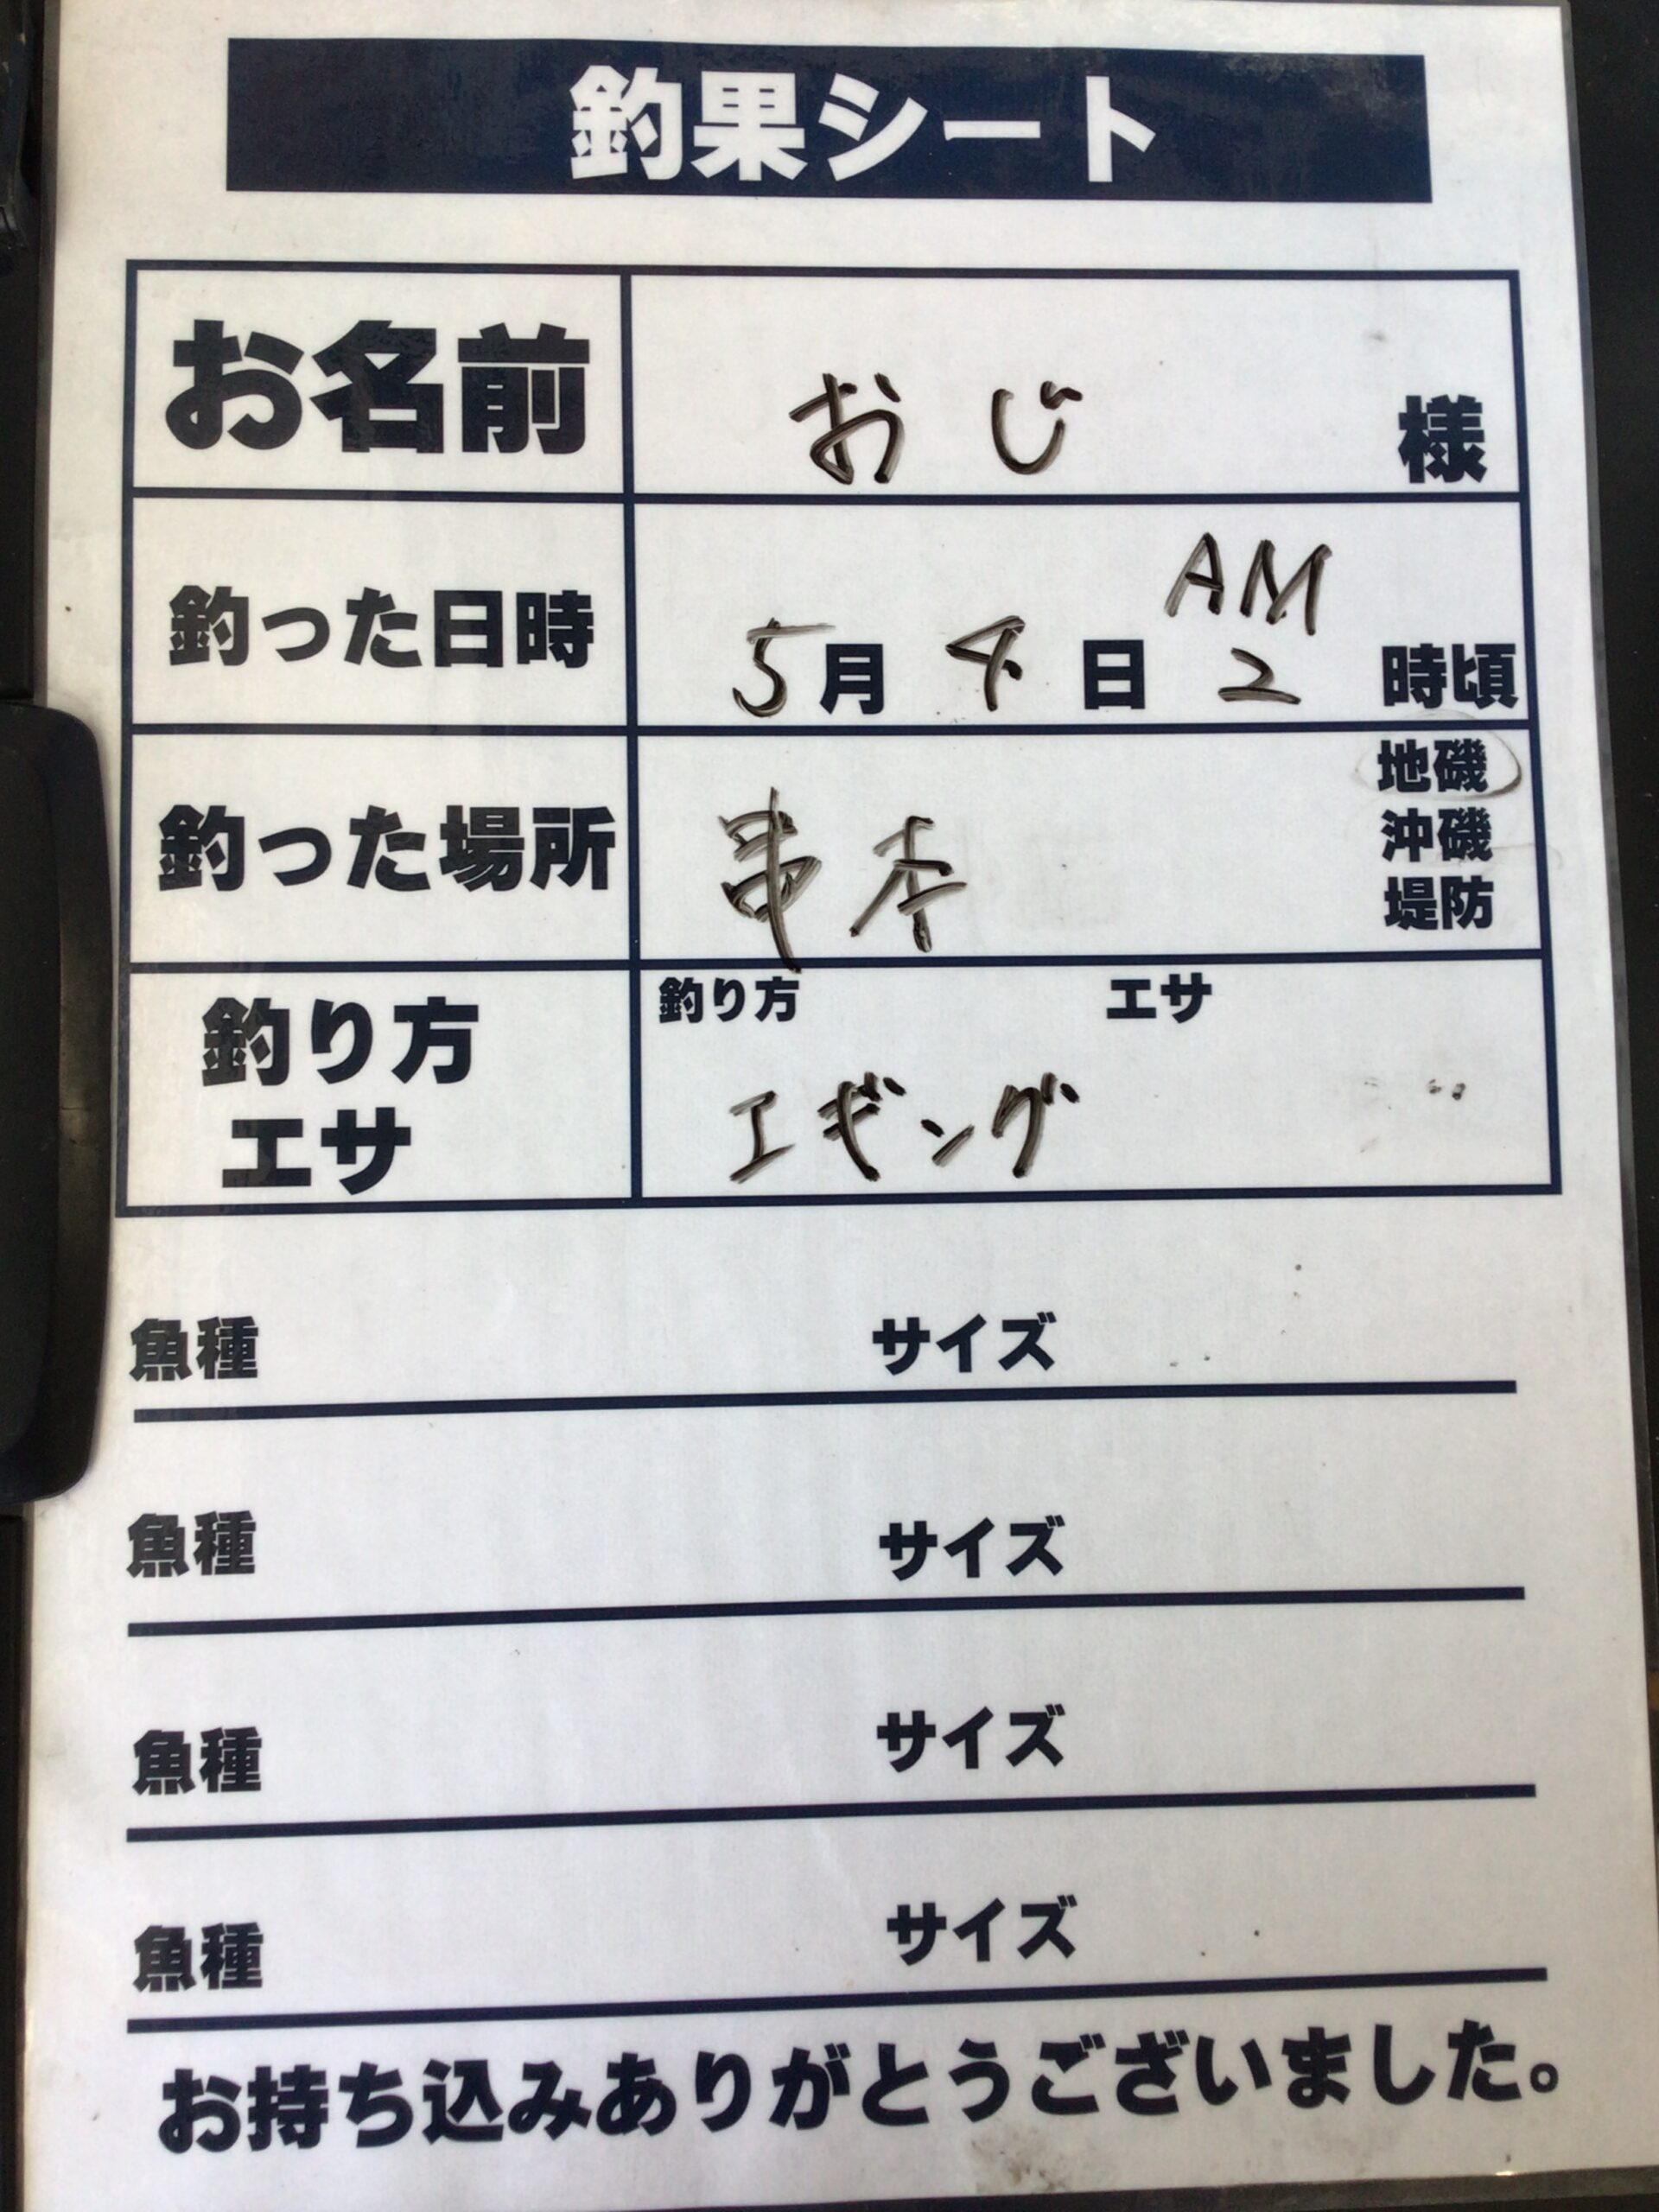 釣果シート
お名前 おじ 様
釣った日時 AM
5月 4日 2 時頃
釣った場所 串本 地磯
沖磯
堤防
釣り方 エサ
釣り方
エサ
エギング
魚種 サイズ
魚種 サイズ
魚種 サイズ
魚種 サイズ
お持ち込みありがとうございました。